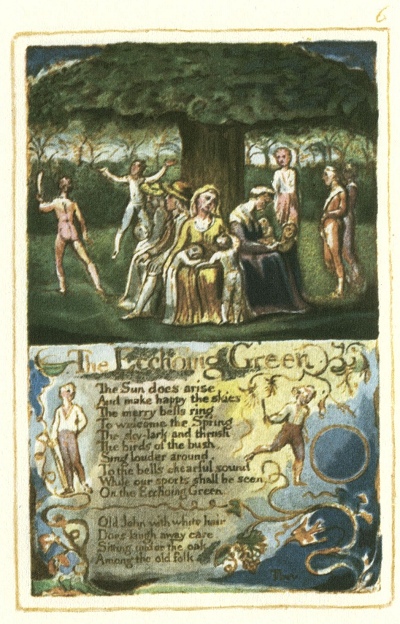 6
The Ecchoing Green
The Sun does arise,
And make happy the skies
The merry bells ring
To welcome the Spring
The sky-lark and thrush
The birds of the bush
Sing louder around,
To the bells chearful sound
While our sports shall be seen
On the Ecchoing Green.
Old John with white hair
Does laugh away care
Sitting under the oak
Among the old folk
They